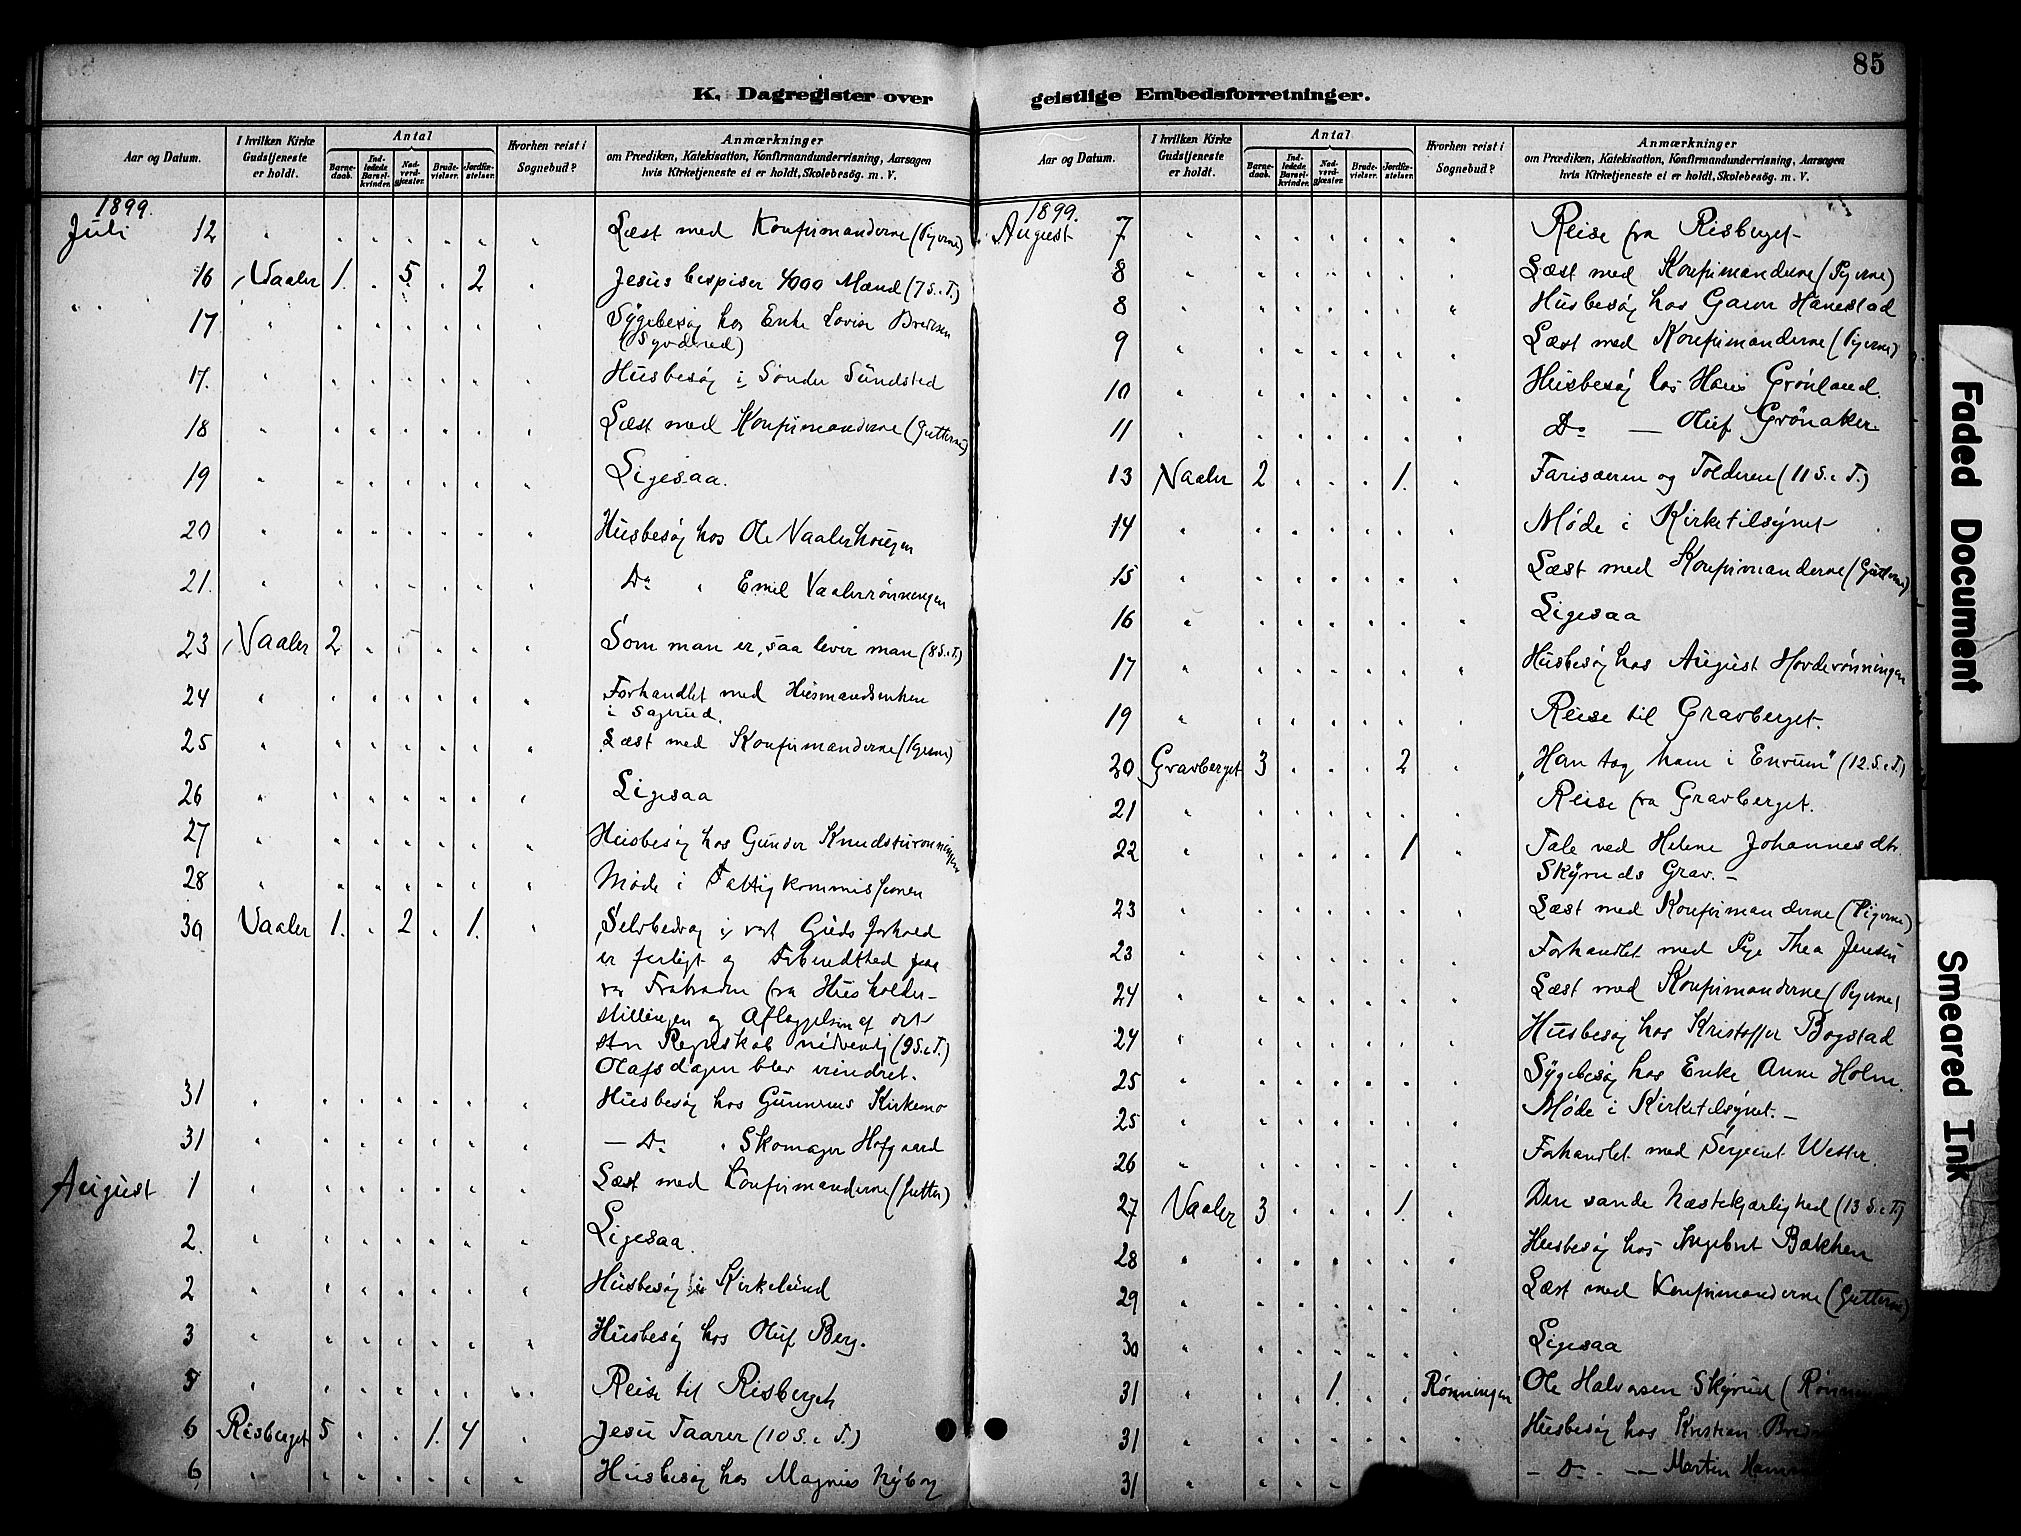 85
K. Dagregister over geistlige Embedsforretninger.
Aar og Datum.
I hvilken Kirke Gudstjeneste er holdt.
Antal
Barnedaab.
Indledede Barselkvinder.
Nadverdgjæster.
Brudevielser.
Jordfæstelser.
Hvorhen reist i Sognebud?
Anmærkninger
om Prædiken, Katekisation, Konfirmandundervisning, Aarsagen
hvis Kirketjeneste ei er holdt, Skolebesøg. m. V.
1899.
Juli 12 Læst med Konfirmanderne (Pigerne)
16 Vaaler 1. 5. 2 Jesus bespiser 4000 Mænd (7 S. i T.)
17 Sygebesøg hos Enke Lovise Bredesen
17. Husbesøg i Søndre Sundsted
18 Læst med Konfirmanderne (Gutterne)
19 Ligesaa.
20 Husbesøg hos Ole Vaalerhougen
21. Do " Emil Vaalerrønningen
23 Vaaler 2 Som man er, saa lever man (8 S. i T.)
24 Forhandlet med Husmandsenken
i Sagerud.
25 Læst med Konfirmanderne (Pigerne)
26 Ligesaa
27 Husbesøg hos Gunder
28 Møde i Fattigkommissionen
30 Vaaler 1. 2 1. Selvbedrag i vort Guds forhold
er farligt og
Fratræden fra Husholder-
stillingen og Aflæggelsen af det
store Regnskab nødvendig (9 S. i T.)
Olafsdagen blev
31 Husbesøg hos Gunnerius Kirkemo
31 — Do " Skomager Hofgaard
August 1 Læst med Konfirmanderne (Gutter)
2. Ligesaa.
2 Husbesøg i Kirkelund
3 Husbesøg hos Oluf Berg.
5 Reise til Risberget
6 Risberget 5 1. 4 Jesu Taarer (10 S. i T.)
6 Husbesøg hos Magnus Nyborg
Aar og Datum.
I hvilken Kirke Gudstjeneste er holdt.
Antal
Barnedaab.
Indledede Barselkvinder.
Nadverdgjæster.
Brudevielser.
Jordfæstelser.
Hvorhen reist i Sognebud?
Anmærkninger
om Prædiken, Katekisation, Konfirmandundervisning, Aarsagen
hvis Kirketjeneste ei er holdt, Skolebesøg. m. V.
1899.
August 7 Reise fra Risberget
8 Læst med Konfirmanderne (Pigerne)
8 Husbesøg hos Hanestad
9 Læst med Konfirmanderne (Pigerne)
10 Husbesøg hos Hans Grønland.
11 Do — Oluf Grønaker
13 Vaaler 2 1. Farisæeren og Tolderen (11 S. i T.)
14 Møde i Kirketilsynet
15 Læst med Konfirmanderne (Gutterne)
16 Ligesaa
17 Husbesøg hos August Horderønningen
19 Reise til Gravberget.
20 Gravberget 3 2 „Han tog ham i Enrum" (12. S. i T.)
21 Reise fra Gravberget.
22 1 Tale ved Helene Johannesdtr.
Skyruds Grav. —
23 Læst med Konfirmanderne (Pigerne)
23 Forhandlet med Pige Thea Jensen
24 Læst med Konfirmanderne (Pigerne)
24 Husbesøg hos Kristoffer Bogstad
25 Sygebesøg hos Enke Anne Holm.
25 Møde i Kirketilsynet. —
26 Forhandlet med Sergeant Wester.
27 Vaaler 3 1. Den sande Næstekjærlighed (13 S. i T.)
28 Husbesøg hos Ingebret Bakken
29 Læst med Konfirmanderne (Gutterne)
30 Ligesaa
31 1. Rønningen Ole Halvorsen Skyrud
31 Husbesøg hos Kristian
31 — Do — Martin
Faded Document
Smeared Ink